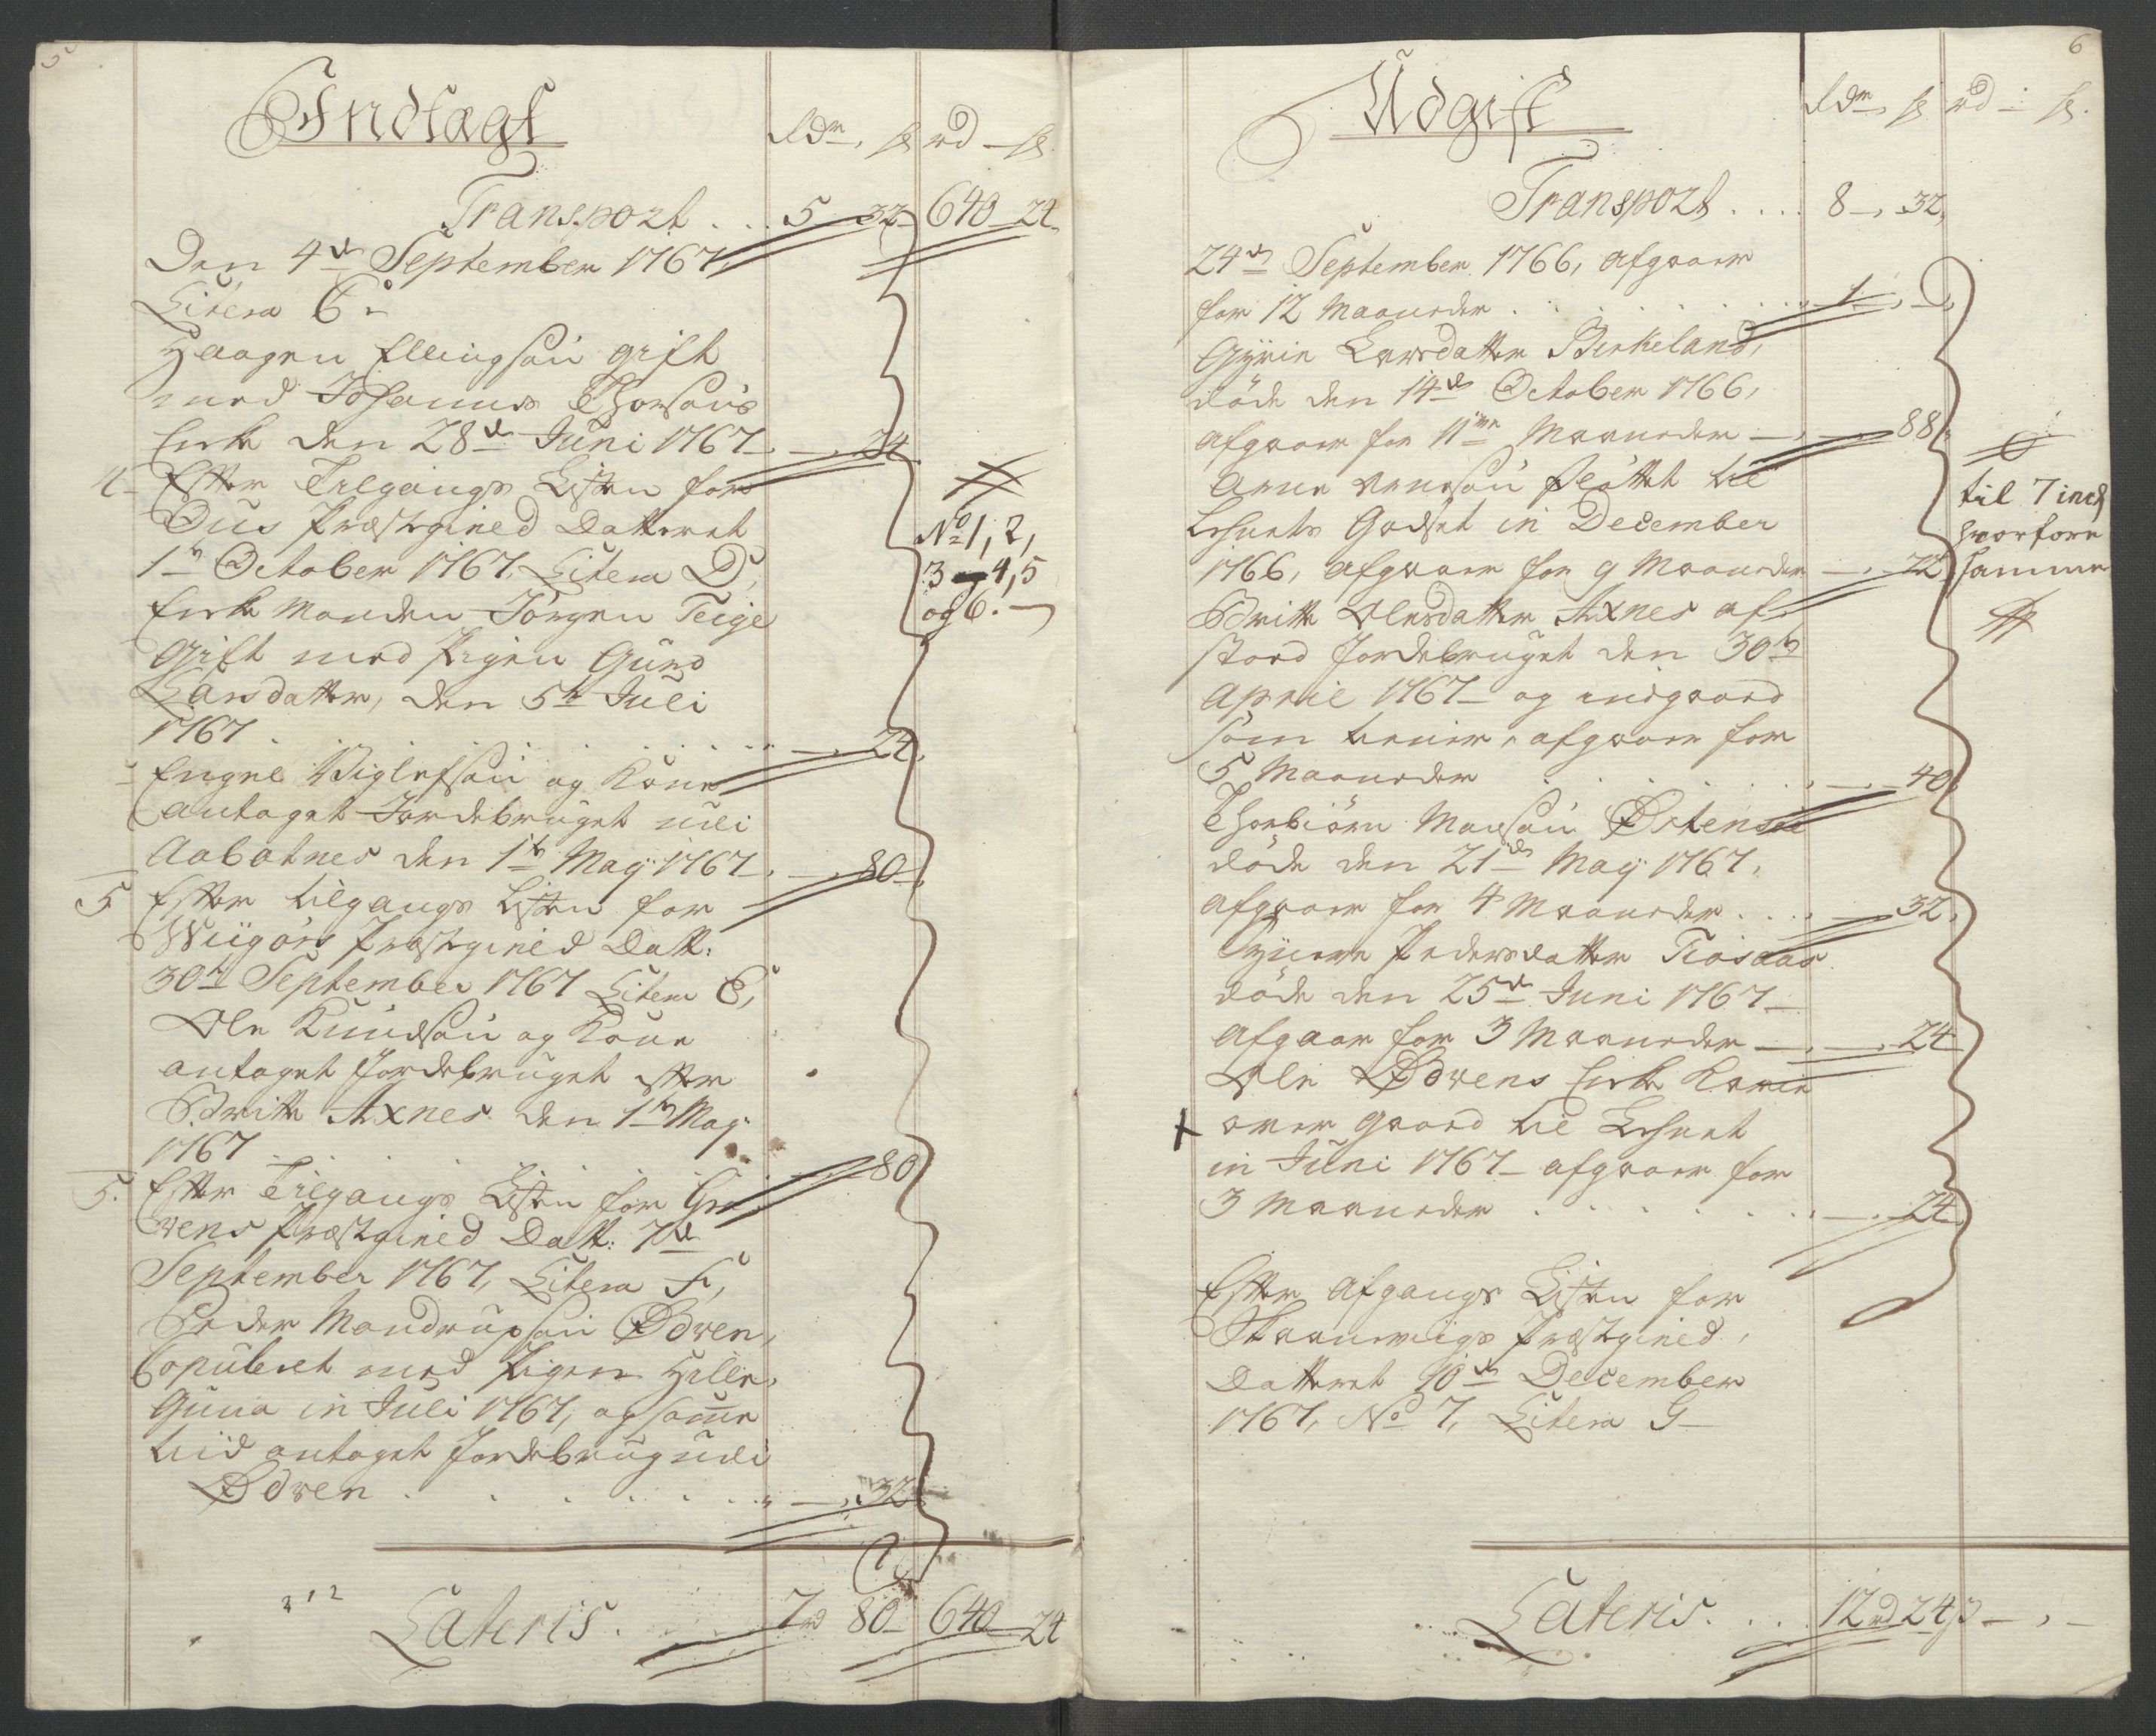 5
Indtægt
rdr, ß rd – ß
Transport . . . 5 – 32 – 640 – 24
Den 4de September 1767,
Litera C.
Haagen Ellingsøn gift
med Johannes Thorsøns
Enke den 28de Juni 1767 – , – 24
4 Efter Tilgangs Listen for
Ous Præstegield Datteret
1te October 1767, Litera D,
Enke Manden Jörgen Teige
Gift med Pigen Guro
Larsdatter, den 5te Juli
1767 . . . . . . – , 24,
Engel Viglefsøn og Kone
antaget Jordebruget udi
Aabotnes den 1te Maij 1767 – , – 80 –
No 1, 2,
3 4, 5
og 6. –
5 Efter tilgangs Listen for
Wiigörs Præstegield Datt:
30te September 1767 Litera E,
Ole Knudsøn og Kone
antaget Jordebruget efter
Britte Axnes den 1te Maij
1767 . . . . . . 80
5. Efter Tilgangs Listen for Gra-
vens Præstegield Datt: 7de
September 1767, Litera F,
Peder Mandrupsøn Ødven,
Copuleret med Pigen Helle-
Guna in Juli 1767, og samme
tiid antaget Jordebrug udi
Ødven . . . . . . – , 32
Lateris . . . . 7rd 80 – 640 – 24
6
Udgift
rdr, ß rd – ß.
Transport . . . . 8 – , 32,
24de September 1766, afgaaer
for 12 Maaneder . . . . . . 1 , – ,
Gyrie Larsdatter Birkeland,
döde den 14de October 1766,
afgaaer for 11ve Maaneder – , – 88
Arne Arnesøn fløttet til
Lehnets Godset in December
1766, afgaaer for 9 Maaneder – , – 72
Britte Olesdatter Axnes af-
stoed Jordebruget den 30te
April 1767 – og indgaaed
som tiener, afgaaer for
5 Maaneder . . . . . . – , 40
til 7 incl
hvorfore
samme
Thorbiörn Monsøn Østensöe
döde den 21de Maij 1767,
afgaaer for 4 Maaneder . . . . – 32,
Pedersdatter Tiosaas
döde den 25de Juni 1767 –
afgaar for 3 Maaneder – , – , 24
Ole Ødvens Enke Karie
over gaaed til Lehnet
in Juni 1767 – afgaaer for
3 Maaneder . . . . . . – , 24
Efter Afgangs Listen for
Præstegield,
Datteret 10de December
1767, No 7, Litera G –
Lateris . . . 12rd 24ß – , –